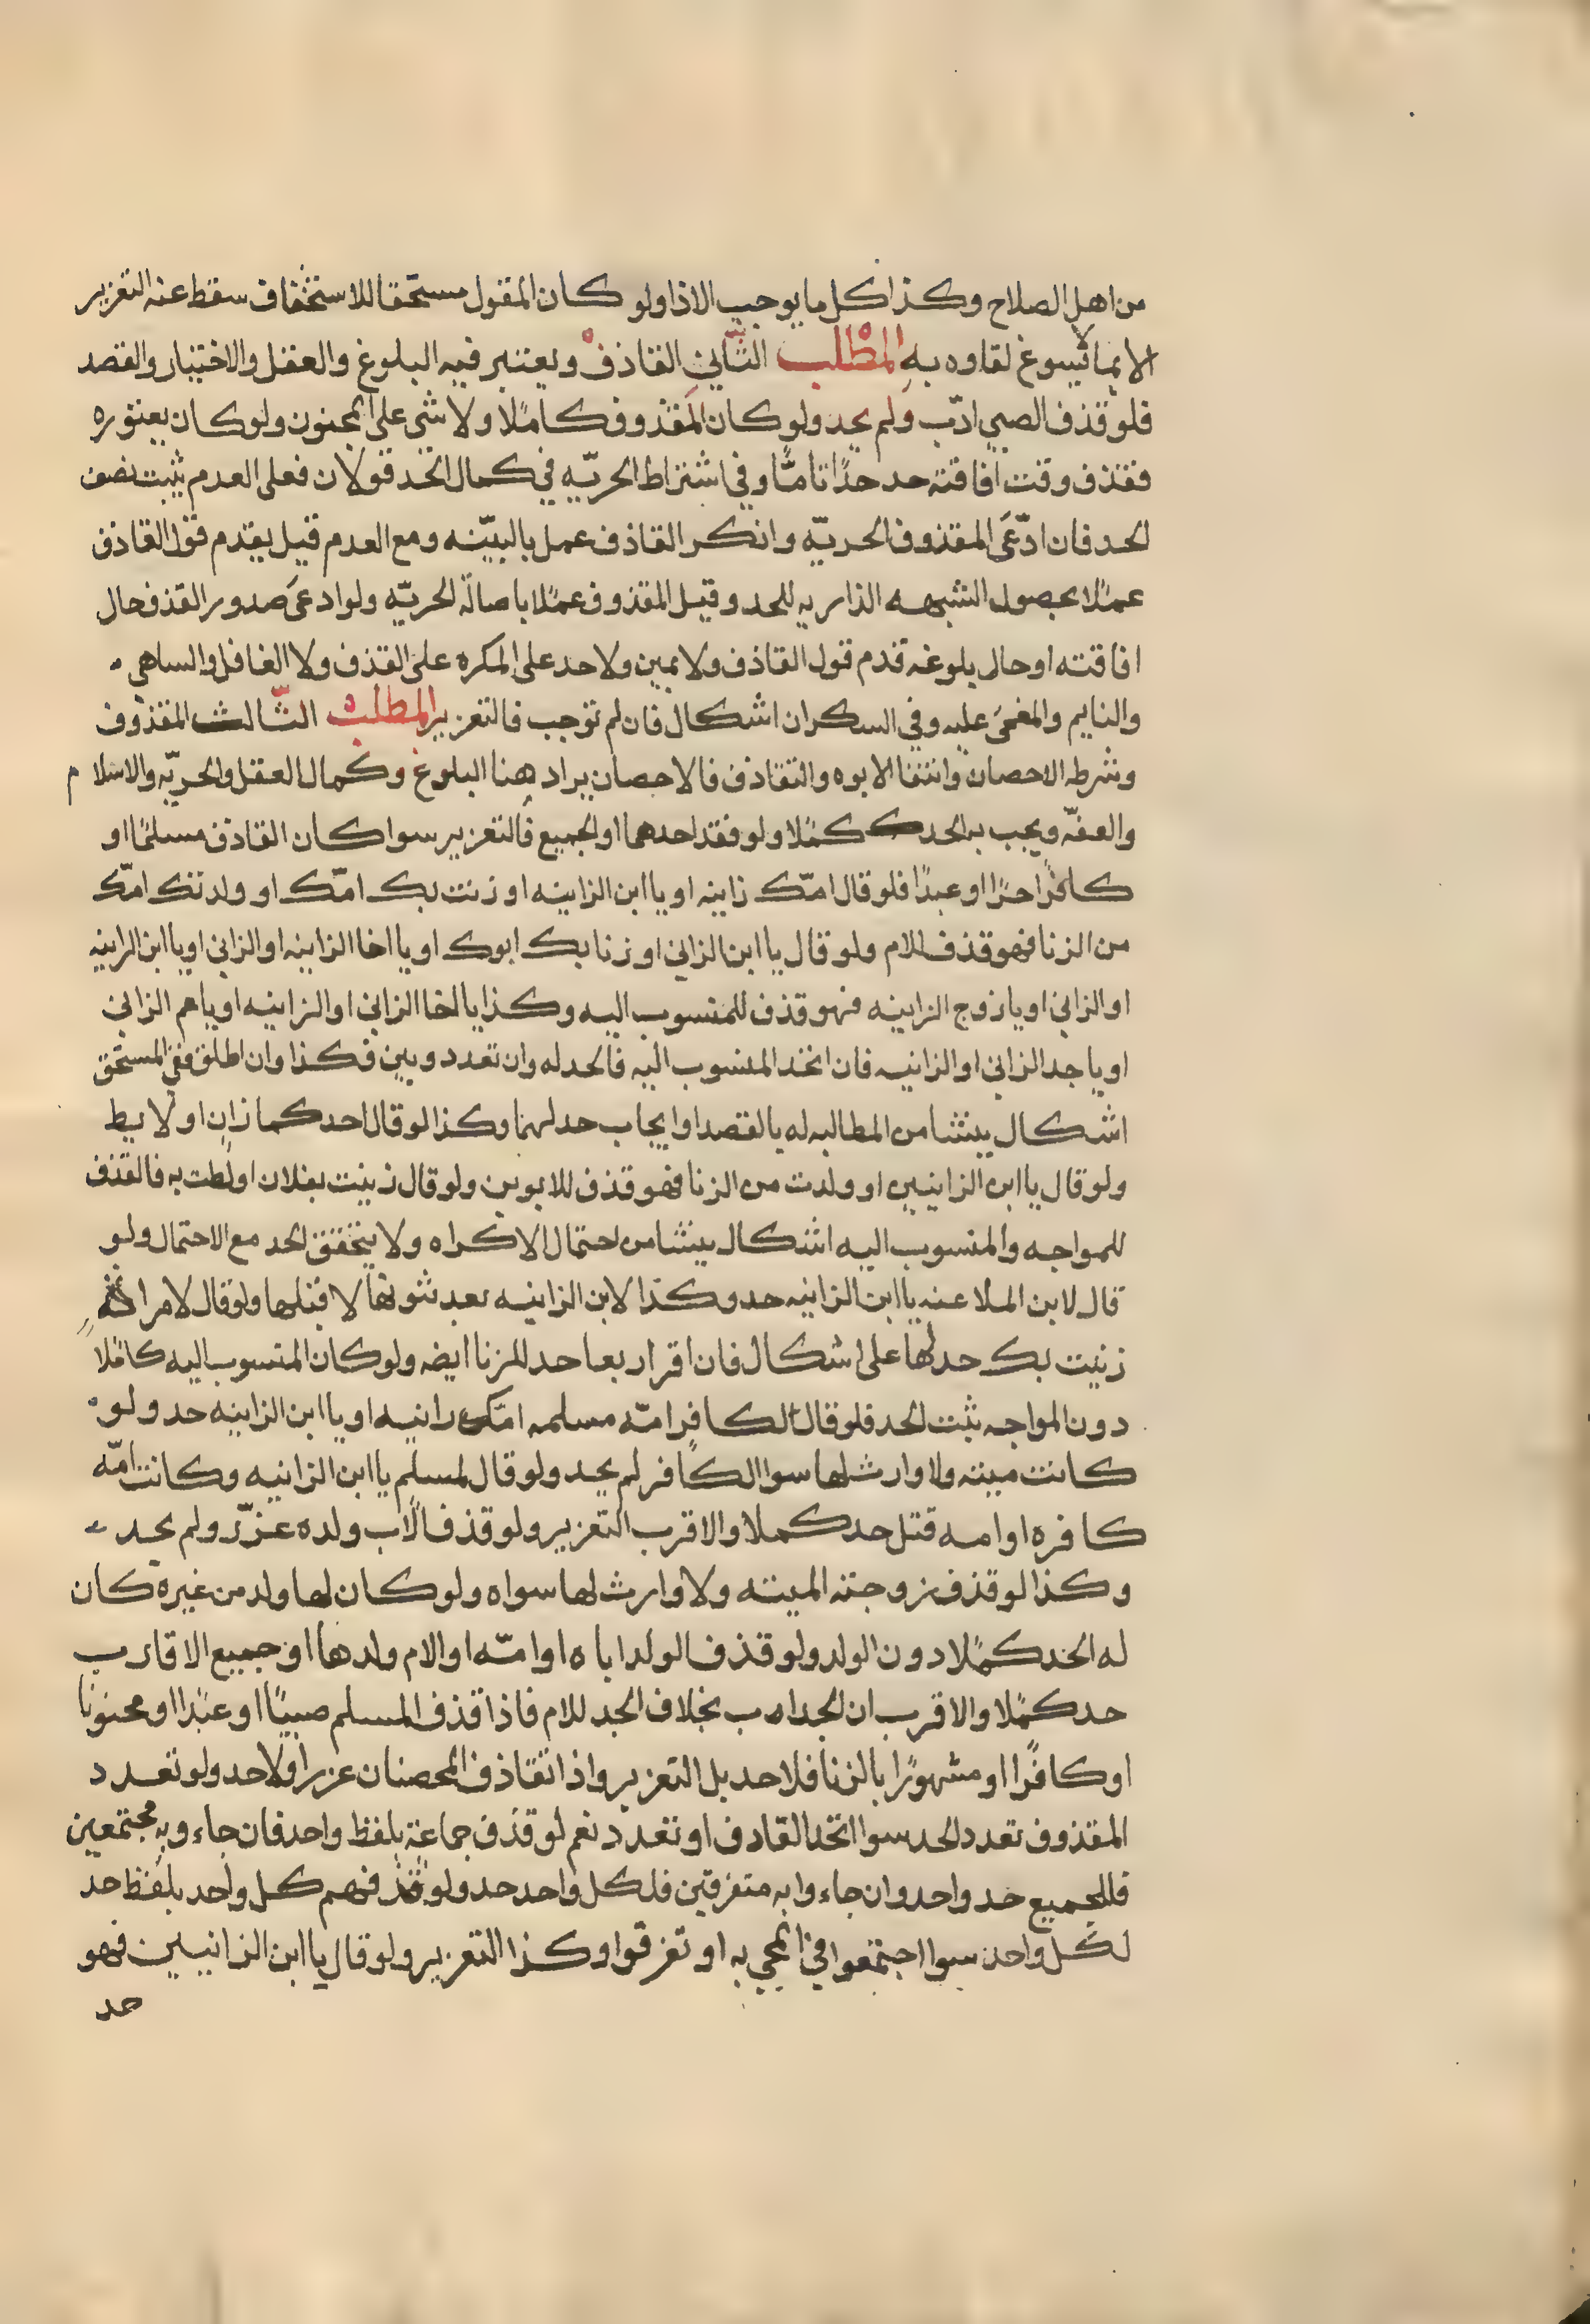 من اهل الصلاح وكذا كل ما يوجب الاذا ولو كان المقول مستحقا للاستخفاف سقط عنه التعزير
الا بما لا يسوغ لقاوه به المطلب الثاني القاذف ويعتبر فيه البلوغ والعقل والاختيار والقصد
فلو قذف الصبي ادّب ولم يحد ولو كان المقذوف كاملا ولا شى على المجنون ولو كان يعتوره
فقذف وقت افاقته حد حدًا تامًّا وفي اشتراط الحريّه في كمال الحد قولان فعلى العدم يثبت نصف
الحد فان ادّعى المقذوف الحريّه وانكر القاذف عمل بالبيّنه ومع العدم قيل يقدم قول القاذف
عملًا بحصول الشبهه الداريه للحد وقيل المقذوف عملًا باصالة الحريّه ولو ادعى صدور القذف حال
افاقته او حال بلوغه قدم قول القاذف ولا يمين ولا حد على المكره على القذف ولا الغافل والساهي
والنايم والمغمى عليه وفي السكران اشكال فان لم توجب فالتعزير المطلب الثّالث المقذوف
وشرطه الاحصان وانتفا الابوه والتقاذف فالاحصان يراد هنا البلوغ وكمال العقل والحريّه والاسلام
والعفّه ويجب به الحد كملًا ولو فقد احدهما او الجميع فالتعزير سوا كان القاذف مسلمًا او
كافرًا حرًا او عبدًا فلو قال امّك زانيه او يا ابن الزانيه او زنت بك امّك او ولدتك امّك
من الزنا فهو قذف للام ولو قال يا ابن الزاني او زنا بك ابوك او يا اخا الزانيه او الزاني او يا ابن الزانيه
او الزاني او يا زوج الزانيه فهو قذف للمنسوب اليه وكذا يا اخا الزاني او الزانيه او يا عم الزاني
او يا جد الزاني او الزانيه فان اتحد المنسوب اليه فالحد له وان تعدد وبين فكذا وان اطلق ففي المستحق
اشكال ينشا من المطالبه له بالقصد او ايجاب حد لهما وكذا لو قال احدكما زان او لايط
ولو قال يا ابن الزانيين او ولدت من الزنا فهو قذف للابوين ولو قال زنيت بفلان او لطت به فالقذف
للمواجه والمنسوب اليه اشكال ينشا من احتمال الاكراه ولا يتحقق الحد مع الاحتمال ولو
قال لابن الملاعنه يا ابن الزانيه حد وكذا لابن الزانيه بعد توبتها لا قبلها ولو قال لامراة
زنيت بك حد لها على اشكال فان اقر اربعا حد للزنا ايضه ولو كان المنسوب اليه كاملًا
دون المواجه ثبت الحد فلو قال لكافر امّه مسلمه امّك زانيه او يا ابن الزانيه حد ولو
كانت ميته ولا وارث لها سوا الكافر لم يحد ولو قال لمسلم يا ابن الزانيه وكانت امّه
كافره او امه قتل حد كملا والاقرب التعزير ولو قذف الاب ولده عزّر ولم يحد
وكذا لو قذف زوجته الميته ولا وارث لها سواه ولو كان لها ولد من غيره كان
له الحد كملًا دون الولد ولو قذف الولد اباه او امّه او الام ولدها او جميع الاقارب
حد كملًا والاقرب ان الجد اب بخلاف الجد للام فاذا قذف المسلم صبيًا او عبدًا او مجنونًا
او كافرًا او مشهورًا بالزنا فلا حد بل التعزير واذا تقاذف المحصنان عزرا ولا حد ولو تعدد
المقذوف تعدد الحد سوا اتحد القاذف او تعدد نعم لو قذف جماعة بلفظ واحد فان جاءوبه مجتمعين
فللجميع حد واحد وان جاءوا به متفرقين فلكل واحد حد ولو قذفهم كل واحد بلفظ حد
لكل واحد سوا اجتمعوا في المجي به او تفرقوا وكذا التعزير ولو قال يا ابن الزانيين فهو
حد